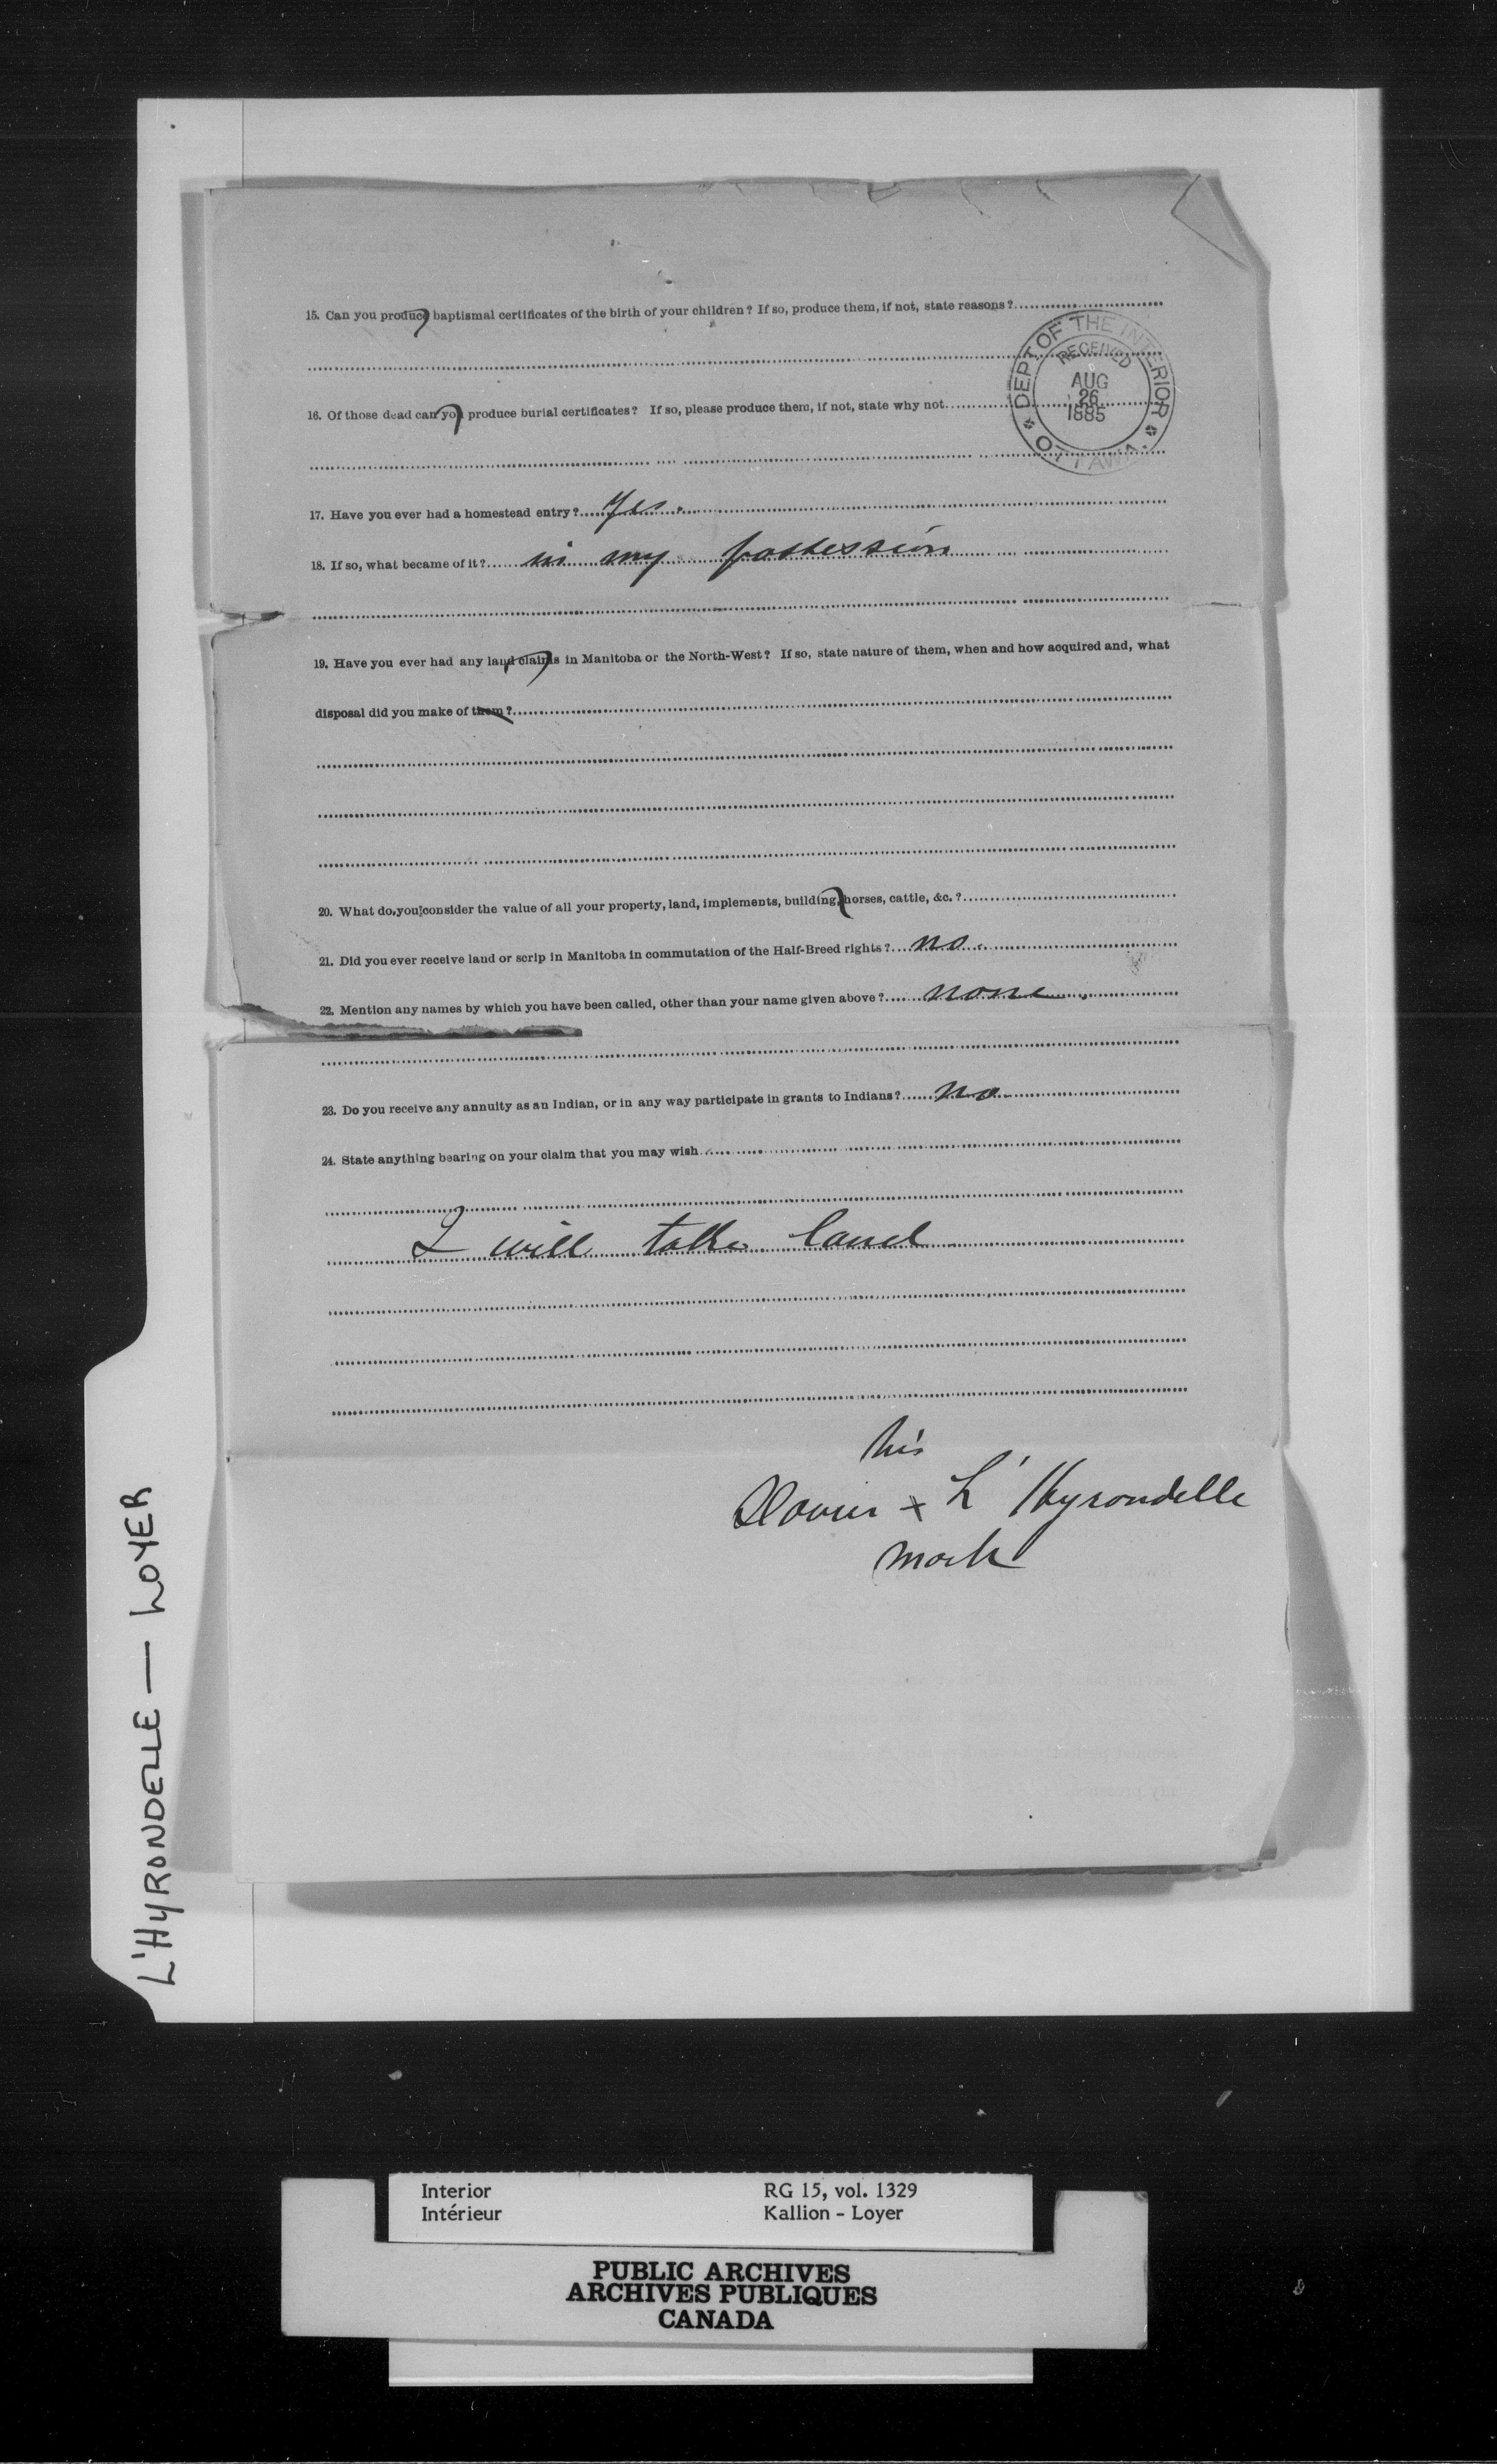 15. Can you produce baptismal certificates of the birth of your children? If so, produce them, if not, state reasons?
DEPT. OF THE INTERIOR
RECEIVED
AUG
26
1885
OTTAWA.
16. Of those dead can you produce burial certificates? If so, please produce them, if not, state why not
17. Have you ever had a homestead entry? Yes.
18. If so, what became of it? in my possession
19. Have you ever had any land claims in Manitoba or the North-West? If so, state nature of them, when and how acquired and, what
disposal did you make of them?
20. What do you consider the value of all your property, land, implements, building, horses, cattle, &c.?
21. Did you ever receive land or scrip in Manitoba in commutation of the Half-Breed rights? no.
22. Mention any names by which you have been called, other than your name given above? none.
23. Do you receive any annuity as an Indian, or in any way participate in grants to Indians? no
24. State anything bearing on your claim that you may wish
I will take land
his
Xavier x L'Hyrondelle
mark
L'HYRONDELLE — LOYER
Interior RG 15, vol. 1329
Intérieur Kallion - Loyer
PUBLIC ARCHIVES
ARCHIVES PUBLIQUES
CANADA